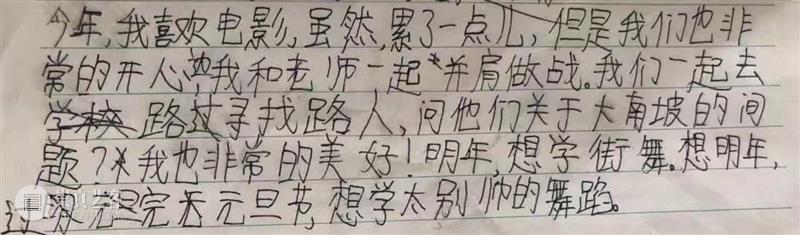 今年,我喜欢电影,虽然,累了一点儿,但是我们也非
常的开心,我和老师一起并肩做战。我们一起去
学校路过寻找路人,问他们关于大南坡的间
题?我也非常的美好!明年,想学街舞。想明年,
过完元旦节,想学太别帅的舞蹈。